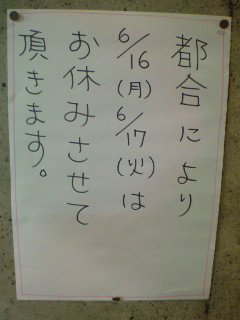 都合により
6/16(月)
6/17(火)は
お休みさせて
頂きます。